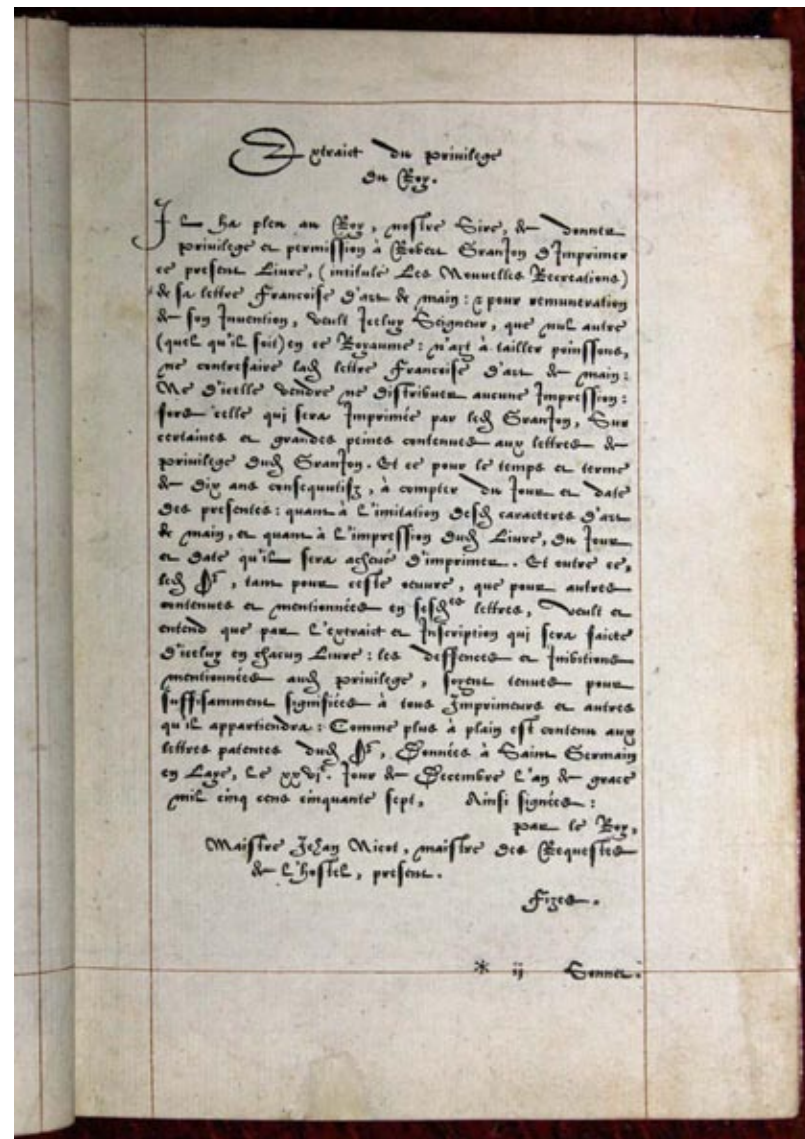 Extraict du privilege
du Roy.
Il ha pleu au Roy, nostre Sire, de donner
privilege et permission à Robert GranJon d'Imprimer
ce present Livre, (intitulé Les Nouvelles Recreations)
de sa lettre Francoise d'art de main: & pour remuneration
de son Invention, veult Iceluy Seigneur, que nul autre
(quel qu'il soit) en ce Royaume: n'ayt à tailler poinssons,
ne contrefaire lad lettre Francoise d'art de main:
Ne d'icelle vendre ne distribuer aucune Impression:
fors celle qui sera Imprimée par led GranJon, Sur
certaines et grandes peines contenues aux lettres de
privilege dud GranJon. Et ce pour le temps et terme
de dix ans consequutifz, à compter du Jour et date
des presentes: quant à l'imitation desd caracteres d'art
de main, et quant à l'impression dud Livre, du Jour
et date qu'il sera achevé d'imprimer. Et outre ce,
led Sr, tant pour ceste oeuvre, que pour autres
contenues et mentionnées en sesdtes lettres, veult et
entend que par l'extraict et Inscription qui sera faicte
d'iceluy en chacun Livre: les deffences et Inibitions
mentionnées aud privilege, soyent tenues pour
suffisamment signifiées à tous Imprimeurs et autres
qu'il appartiendra: Comme plus à plain est contenu aux
lettres patentes dud Sr, Données à Saint Germain
en Laye, Le xxvje. Jour de Decembre L'an de grace
mil cinq cens cinquante sept, Ainsi signées:
par le Roy,
Maistre Jehan Nicot, maistre des Requestes
de L'hostel, present.
Fizes.
* ij Sonnet.